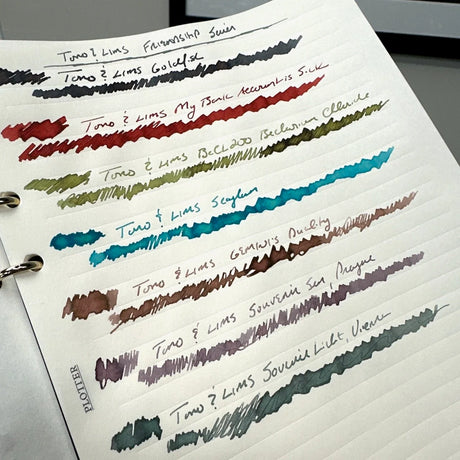 Tono & Lims Friendship Series
Tono & Lims Goldfish
Tono & Lims My Bank Account is Sick
Tono & Lims BcCl200 Beclurium Chloride
Tono & Lims
Tono & Lims Gemini's Duality
Tono & Lims Souvenir Sen, Prague
Tono & Lims Souvenir Licht, Vienna
PLOTTER